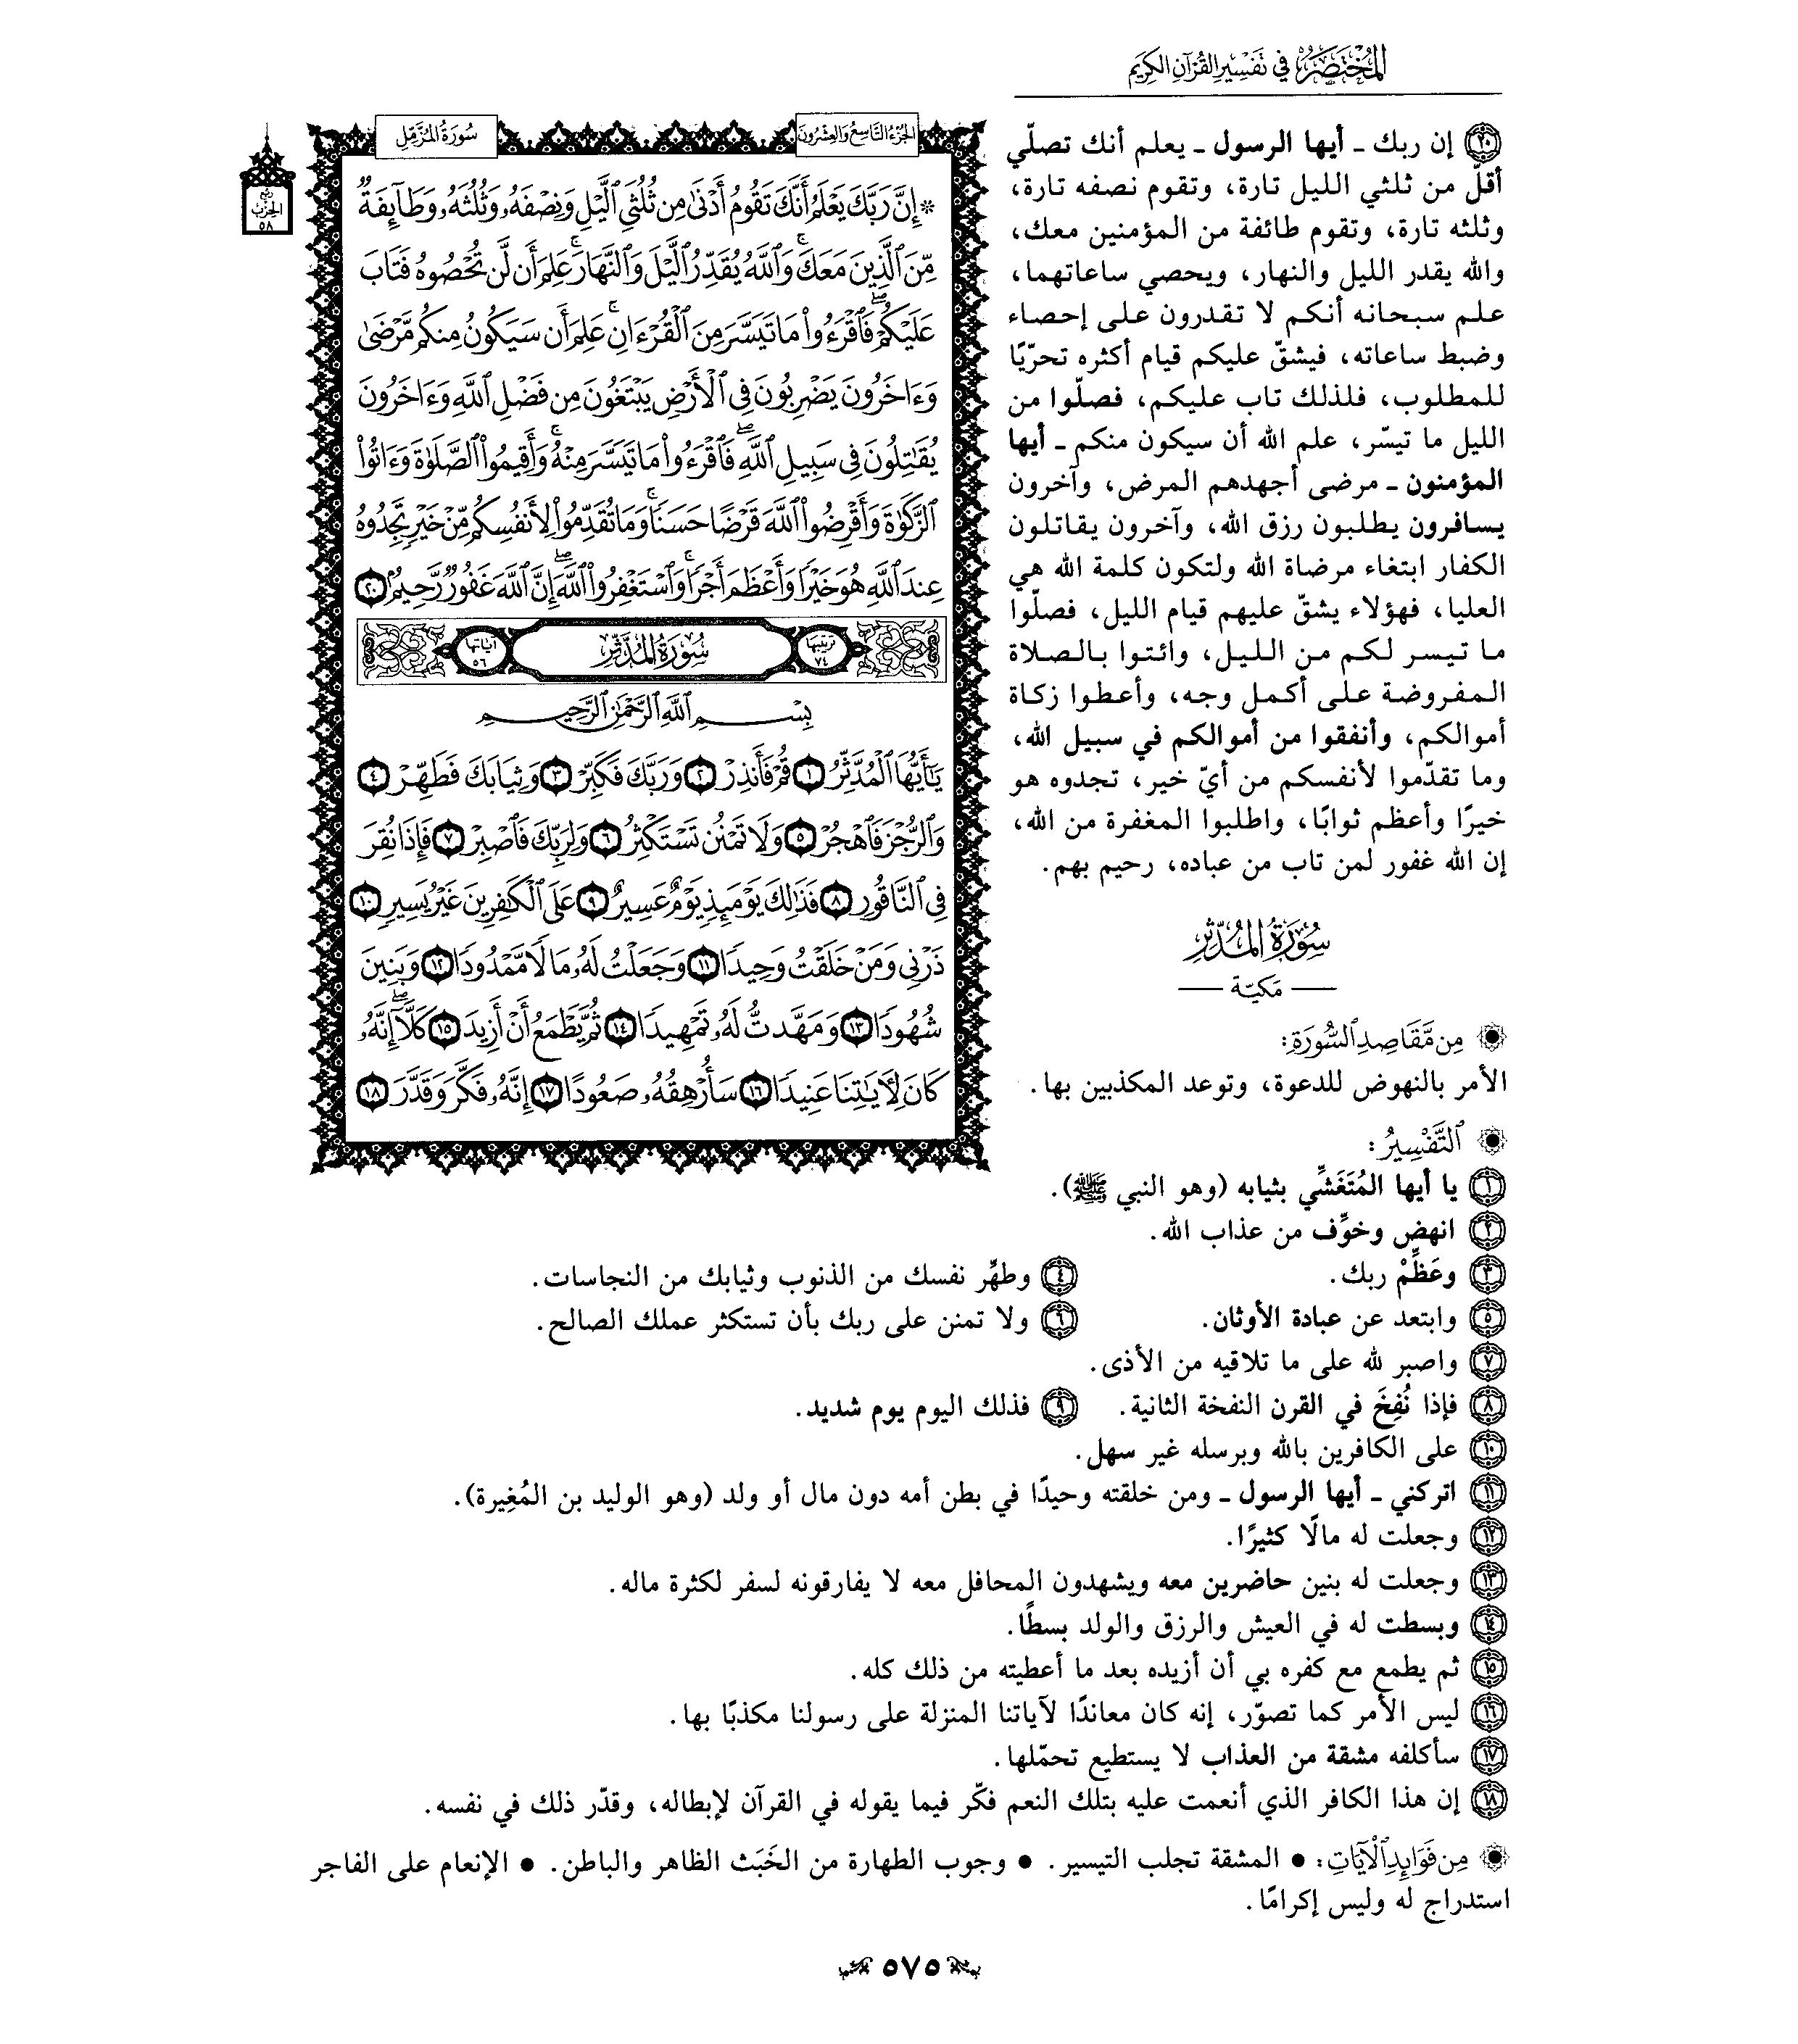 المختصر في تفسير القرآن الكريم
سُورَةُ المُزَّمِّلِ
الجُزْءُ التَّاسِعُ وَالعِشْرُونَ
ربع الحزب ٥٨
* إِنَّ رَبَّكَ يَعْلَمُ أَنَّكَ تَقُومُ أَدْنَىٰ مِن ثُلُثَيِ ٱلَّيْلِ وَنِصْفَهُۥ وَثُلُثَهُۥ وَطَآئِفَةٌ
مِّنَ ٱلَّذِينَ مَعَكَۚ وَٱللَّهُ يُقَدِّرُ ٱلَّيْلَ وَٱلنَّهَارَۚ عَلِمَ أَن لَّن تُحْصُوهُ فَتَابَ
عَلَيْكُمْۖ فَٱقْرَءُواْ مَا تَيَسَّرَ مِنَ ٱلْقُرْءَانِۚ عَلِمَ أَن سَيَكُونُ مِنكُم مَّرْضَىٰ
وَءَاخَرُونَ يَضْرِبُونَ فِي ٱلْأَرْضِ يَبْتَغُونَ مِن فَضْلِ ٱللَّهِ وَءَاخَرُونَ
يُقَٰتِلُونَ فِي سَبِيلِ ٱللَّهِۖ فَٱقْرَءُواْ مَا تَيَسَّرَ مِنْهُۚ وَأَقِيمُواْ ٱلصَّلَوٰةَ وَءَاتُواْ
ٱلزَّكَوٰةَ وَأَقْرِضُواْ ٱللَّهَ قَرْضًا حَسَنًاۚ وَمَا تُقَدِّمُواْ لِأَنفُسِكُم مِّنْ خَيْرٍ تَجِدُوهُ
عِندَ ٱللَّهِ هُوَ خَيْرًا وَأَعْظَمَ أَجْرًاۚ وَٱسْتَغْفِرُواْ ٱللَّهَۖ إِنَّ ٱللَّهَ غَفُورٌ رَّحِيمٌ ٢٠
ترتيبها ٧٤ سُورَةُ المُدَّثِّرِ آياتها ٥٦
بِسْمِ ٱللَّهِ ٱلرَّحْمَٰنِ ٱلرَّحِيمِ
يَٰٓأَيُّهَا ٱلْمُدَّثِّرُ ١ قُمْ فَأَنذِرْ ٢ وَرَبَّكَ فَكَبِّرْ ٣ وَثِيَابَكَ فَطَهِّرْ ٤
وَٱلرُّجْزَ فَٱهْجُرْ ٥ وَلَا تَمْنُن تَسْتَكْثِرُ ٦ وَلِرَبِّكَ فَٱصْبِرْ ٧ فَإِذَا نُقِرَ
فِي ٱلنَّاقُورِ ٨ فَذَٰلِكَ يَوْمَئِذٍ يَوْمٌ عَسِيرٌ ٩ عَلَى ٱلْكَٰفِرِينَ غَيْرُ يَسِيرٍ ١٠
ذَرْنِي وَمَنْ خَلَقْتُ وَحِيدًا ١١ وَجَعَلْتُ لَهُۥ مَالًا مَّمْدُودًا ١٢ وَبَنِينَ
شُهُودًا ١٣ وَمَهَّدتُّ لَهُۥ تَمْهِيدًا ١٤ ثُمَّ يَطْمَعُ أَنْ أَزِيدَ ١٥ كَلَّآۖ إِنَّهُۥ
كَانَ لِأٓيَٰتِنَا عَنِيدًا ١٦ سَأُرْهِقُهُۥ صَعُودًا ١٧ إِنَّهُۥ فَكَّرَ وَقَدَّرَ ١٨
٢٠ إن ربك ـ أيها الرسول ـ يعلم أنك تصلّي
أقلّ من ثلثي الليل تارة، وتقوم نصفه تارة،
وثلثه تارة، وتقوم طائفة من المؤمنين معك،
والله يقدر الليل والنهار، ويحصي ساعاتهما،
علم سبحانه أنكم لا تقدرون على إحصاء
وضبط ساعاته، فيشقّ عليكم قيام أكثره تحرّيًا
للمطلوب، فلذلك تاب عليكم، فصلّوا من
الليل ما تيسّر، علم الله أن سيكون منكم ـ أيها
المؤمنون ـ مرضى أجهدهم المرض، وآخرون
يسافرون يطلبون رزق الله، وآخرون يقاتلون
الكفار ابتغاء مرضاة الله ولتكون كلمة الله هي
العليا، فهؤلاء يشقّ عليهم قيام الليل، فصلّوا
ما تيسر لكم من الليل، وائتوا بالصلاة
المفروضة على أكمل وجه، وأعطوا زكاة
أموالكم، وأنفقوا من أموالكم في سبيل الله،
وما تقدّموا لأنفسكم من أيّ خير، تجدوه هو
خيرًا وأعظم ثوابًا، واطلبوا المغفرة من الله،
إن الله غفور لمن تاب من عباده، رحيم بهم.
سُورَةُ المُدَّثِّرِ
— مكيّة —
مِن مَّقَاصِدِ السُّورَةِ:
الأمر بالنهوض للدعوة، وتوعد المكذبين بها.
التَّفْسِيرُ:
١ يا أيها المُتَغَشِّي بثيابه (وهو النبي ﷺ).
٢ انهض وخوِّف من عذاب الله.
٣ وعَظِّمْ ربك. ٤ وطهِّر نفسك من الذنوب وثيابك من النجاسات.
٥ وابتعد عن عبادة الأوثان. ٦ ولا تمنن على ربك بأن تستكثر عملك الصالح.
٧ واصبر لله على ما تلاقيه من الأذى.
٨ فإذا نُفِخَ في القرن النفخة الثانية. ٩ فذلك اليوم يوم شديد.
١٠ على الكافرين بالله وبرسله غير سهل.
١١ اتركني ـ أيها الرسول ـ ومن خلقته وحيدًا في بطن أمه دون مال أو ولد (وهو الوليد بن المُغِيرة).
١٢ وجعلت له مالًا كثيرًا.
١٣ وجعلت له بنين حاضرين معه ويشهدون المحافل معه لا يفارقونه لسفر لكثرة ماله.
١٤ وبسطت له في العيش والرزق والولد بسطًا.
١٥ ثم يطمع مع كفره بي أن أزيده بعد ما أعطيته من ذلك كله.
١٦ ليس الأمر كما تصوّر، إنه كان معاندًا لآياتنا المنزلة على رسولنا مكذبًا بها.
١٧ سأكلفه مشقة من العذاب لا يستطيع تحمّلها.
١٨ إن هذا الكافر الذي أنعمت عليه بتلك النعم فكّر فيما يقوله في القرآن لإبطاله، وقدّر ذلك في نفسه.
مِن فَوَائِدِ الْآيَاتِ: ● المشقة تجلب التيسير. ● وجوب الطهارة من الخَبَث الظاهر والباطن. ● الإنعام على الفاجر
استدراج له وليس إكرامًا.
٥٧٥